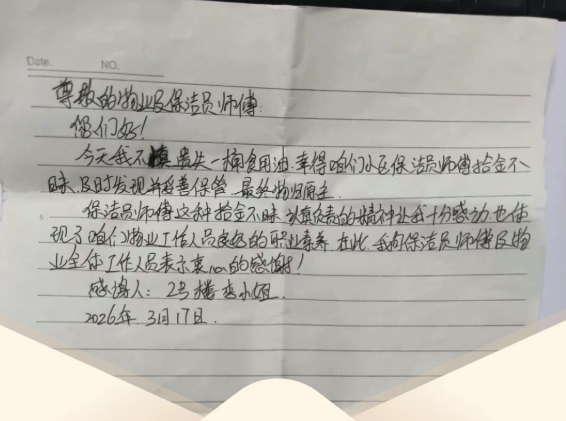 Date. NO.
尊敬的物业及保洁员师傅:
您们好!
今天我不慎遗失一桶食用油,幸得咱们小区保洁员师傅拾金不
昧,及时发现并妥善保管,最终物归原主.
保洁员师傅这种拾金不昧,认真负责的精神让我十分感动,也体
现了咱们物业工作人员良好的职业素养.在此,我向保洁员师傅及物
业全体工作人员表示衷心的感谢!
感谢人:2号楼李小姐.
2026年3月17日.